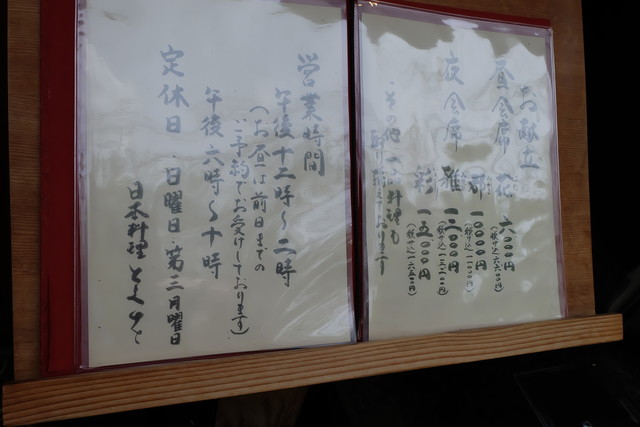 お献立
昼会席 花 六〇〇〇円
(税込 六六〇〇円)
一〇〇〇〇円
(税込 一一〇〇〇円)
夜会席 雅 一二〇〇〇円
(税込 一三二〇〇円)
彩 一五〇〇〇円
(税込 一六五〇〇円)
その他一品料理も
取り揃えております
営業時間
午後十二時〜二時
(お昼は前日までの
ご予約でお受けしております)
午後六時〜十時
定休日 日曜日・第三月曜日
日本料理